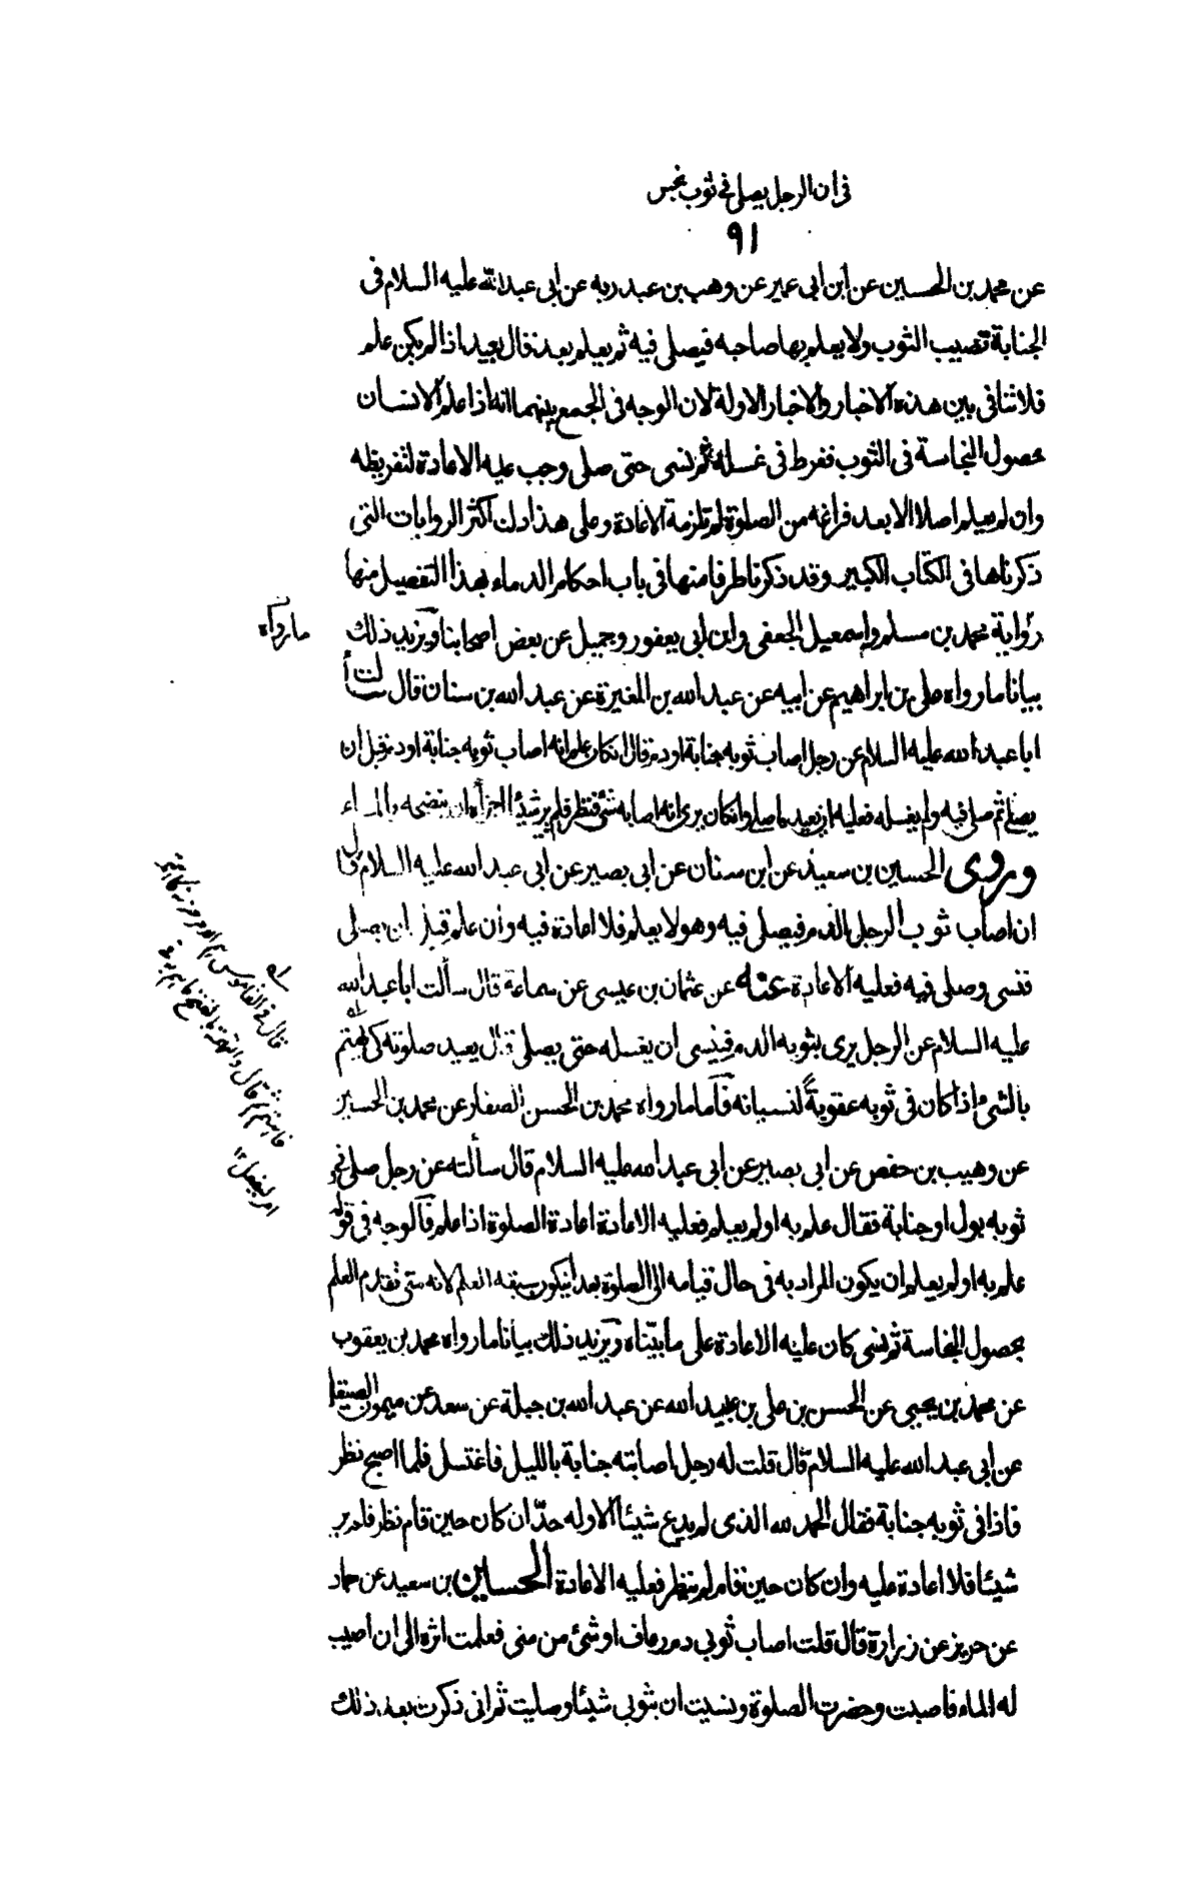 فى ان الرجل يصلى فى ثوب نجس
٩١
عن محمد بن الحسين عن ابن ابى عمير عن وهب بن عبد ربه عن ابى عبد الله عليه السلام فى
الجنابة تصيب الثوب ولا يعلم بها صاحبه فيصلى فيه ثم يعلم بعد قال يعيد اذا لم يكن علم
فلا تنافى بين هذه الاخبار والاخبار الاولة لان الوجه فى الجمع بينهما انه اذا علم الانسان
حصول النجاسة فى الثوب ففرط فى غسله ثم نسى حتى صلى وجب عليه الاعادة لتفريطه
وان لم يعلم اصلا الا بعد فراغه من الصلوة لم تلزمه الاعادة وعلى هذا دلت اكثر الروايات التى
ذكرناها فى الكتاب الكبير وقد ذكرنا طرفا منها فى باب احكام الدماء بهذا التفصيل منها
رواية محمد بن مسلم واسمعيل الجعفى وابن ابى يعفور وجميل عن بعض اصحابنا ويزيد ذلك
بيانا ما رواه على بن ابراهيم عن ابيه عن عبد الله بن المغيرة عن عبد الله بن سنان قال سألت
ابا عبد الله عليه السلام عن رجل اصاب ثوبه جنابة او دم قال ان كان علم انه اصاب ثوبه جنابة او دم قبل ان
يصلى ثم صلى فيه ولم يغسله فعليه ان يعيد ما صلى وان كان يرى انه اصابه شئ فنظر فلم ير شيئا اجزأه ان ينضحه بالماء
وروى الحسين بن سعيد عن ابن سنان عن ابى بصير عن ابى عبد الله عليه السلام قال
ان اصاب ثوب الرجل الدم فيصلى فيه وهو لا يعلم فلا اعادة فيه وان علم قبل ان يصلى
فنسى وصلى فيه فعليه الاعادة عنه عن عثمان بن عيسى عن سماعة قال سألت ابا عبد الله
عليه السلام عن الرجل يرى بثوبه الدم فينسى ان يغسله حتى يصلى قال يعيد صلوته كى يهتم
بالشئ اذا كان فى ثوبه عقوبة لنسيانه فاما ما رواه محمد بن الحسن الصفار عن محمد بن الحسين
عن وهيب بن حفص عن ابى بصير عن ابى عبد الله عليه السلام قال سألته عن رجل صلى فى
ثوبه بول او جنابة فقال علم به او لم يعلم فعليه الاعادة اعادة الصلوة اذا علم فالوجه فى قوله
علم به او لم يعلم ان يكون المراد به فى حال قيامه الى الصلوة بعد ان يكون سبقه العلم لانه متى تقدم العلم
بحصول النجاسة ثم نسى كان عليه الاعادة على ما بيّناه ويزيد ذلك بيانا ما رواه محمد بن يعقوب
عن محمد بن يحيى عن الحسن بن على بن عبيد الله عن عبد الله بن جبلة عن سعد عن ميمون الصيقل
عن ابى عبد الله عليه السلام قال قلت له رجل اصابته جنابة بالليل فاغتسل فلما اصبح نظر
فاذا فى ثوبه جنابة فقال الحمد لله الذى لم يدع شيئا الا وله حدّ ان كان حين قام نظر فلم ير
شيئا فلا اعادة عليه وان كان حين قام لم ينظر فعليه الاعادة الحسين بن سعيد عن حماد
عن حريز عن زرارة قال قلت اصاب ثوبى دم رعاف او شئ من منى فعلمت اثره الى ان اصيب
له الماء فاصبت وحضرت الصلوة ونسيت ان بثوبى شيئا وصليت ثم انى ذكرت بعد ذلك
ما رواه
قال فى القاموس